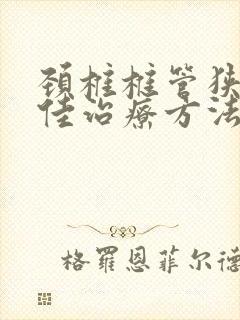 颈椎椎管狭
佳治疗方法
格羅恩菲尔德